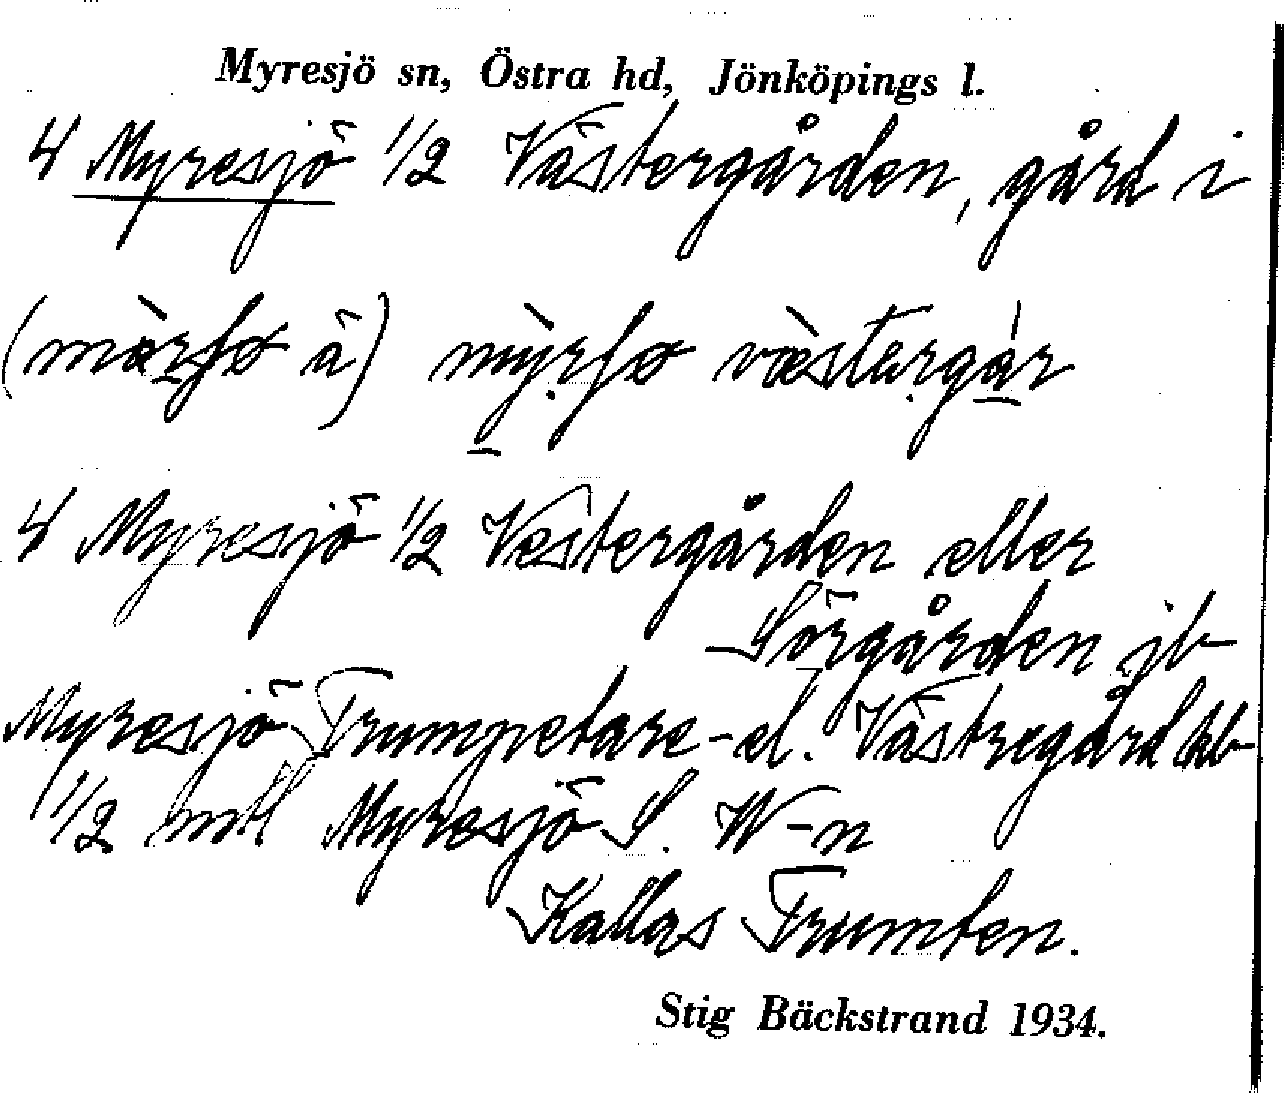 Myresjö sn, Östra hd, Jönköpings l.
4 Myresjö 1/2 Västergården, gård i
(mòrʃø â) mỳrʃø væ̀stərgár
4 Myresjö 1/2 Vestergården eller
Sörgården jb
Myresjö Trumpetare- el. Västregård kb
1/2 mtl Myresjö S. W-n
Kallas Trumten.
Stig Bäckstrand 1934.